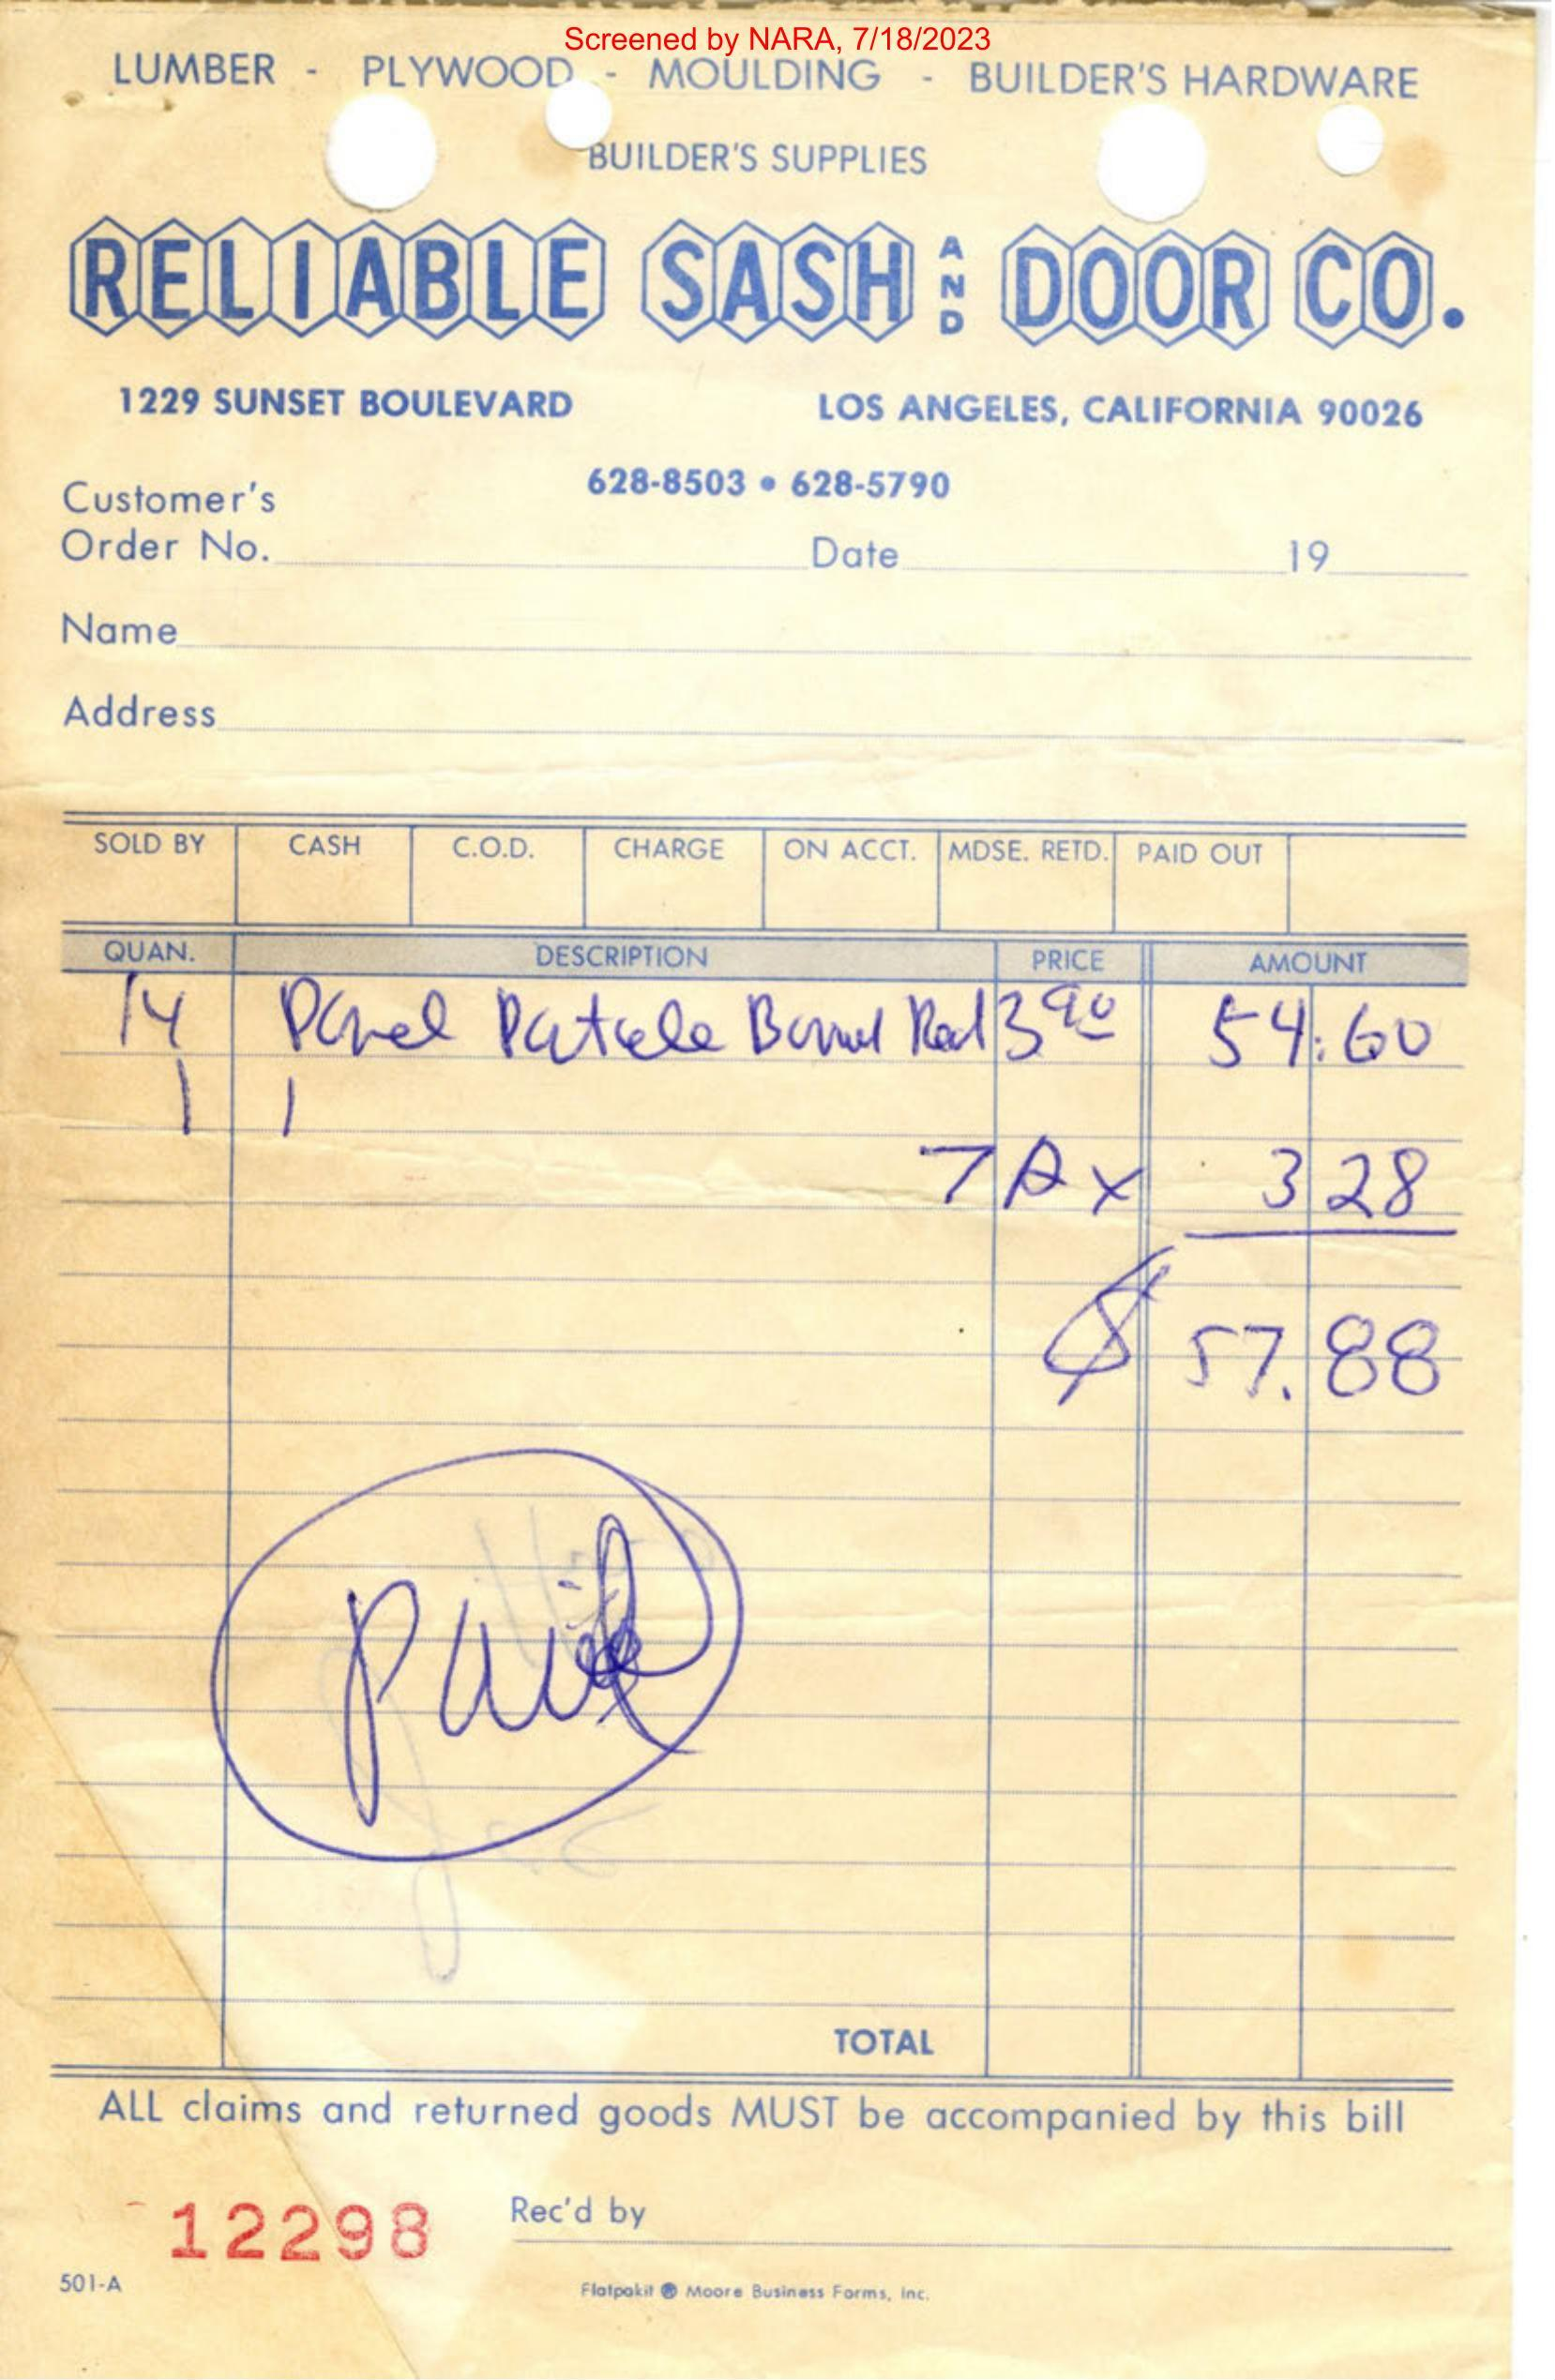 Screened by NARA, 7/18/2023
LUMBER - PLYWOOD - MOULDING - BUILDER'S HARDWARE
BUILDER'S SUPPLIES
RELIABLE SASH AND DOOR CO.
1229 SUNSET BOULEVARD LOS ANGELES, CALIFORNIA 90026
628-8503 • 628-5790
Customer's
Order No. Date 19
Name
Address
SOLD BY CASH C.O.D. CHARGE ON ACCT. MDSE. RETD. PAID OUT
QUAN. DESCRIPTION PRICE AMOUNT
14 Panel 3 90 54.60
TAX 3 28
$ 57.88
Paid
TOTAL
ALL claims and returned goods MUST be accompanied by this bill
12298 Rec'd by
501-A Flatpakit ® Moore Business Forms, Inc.